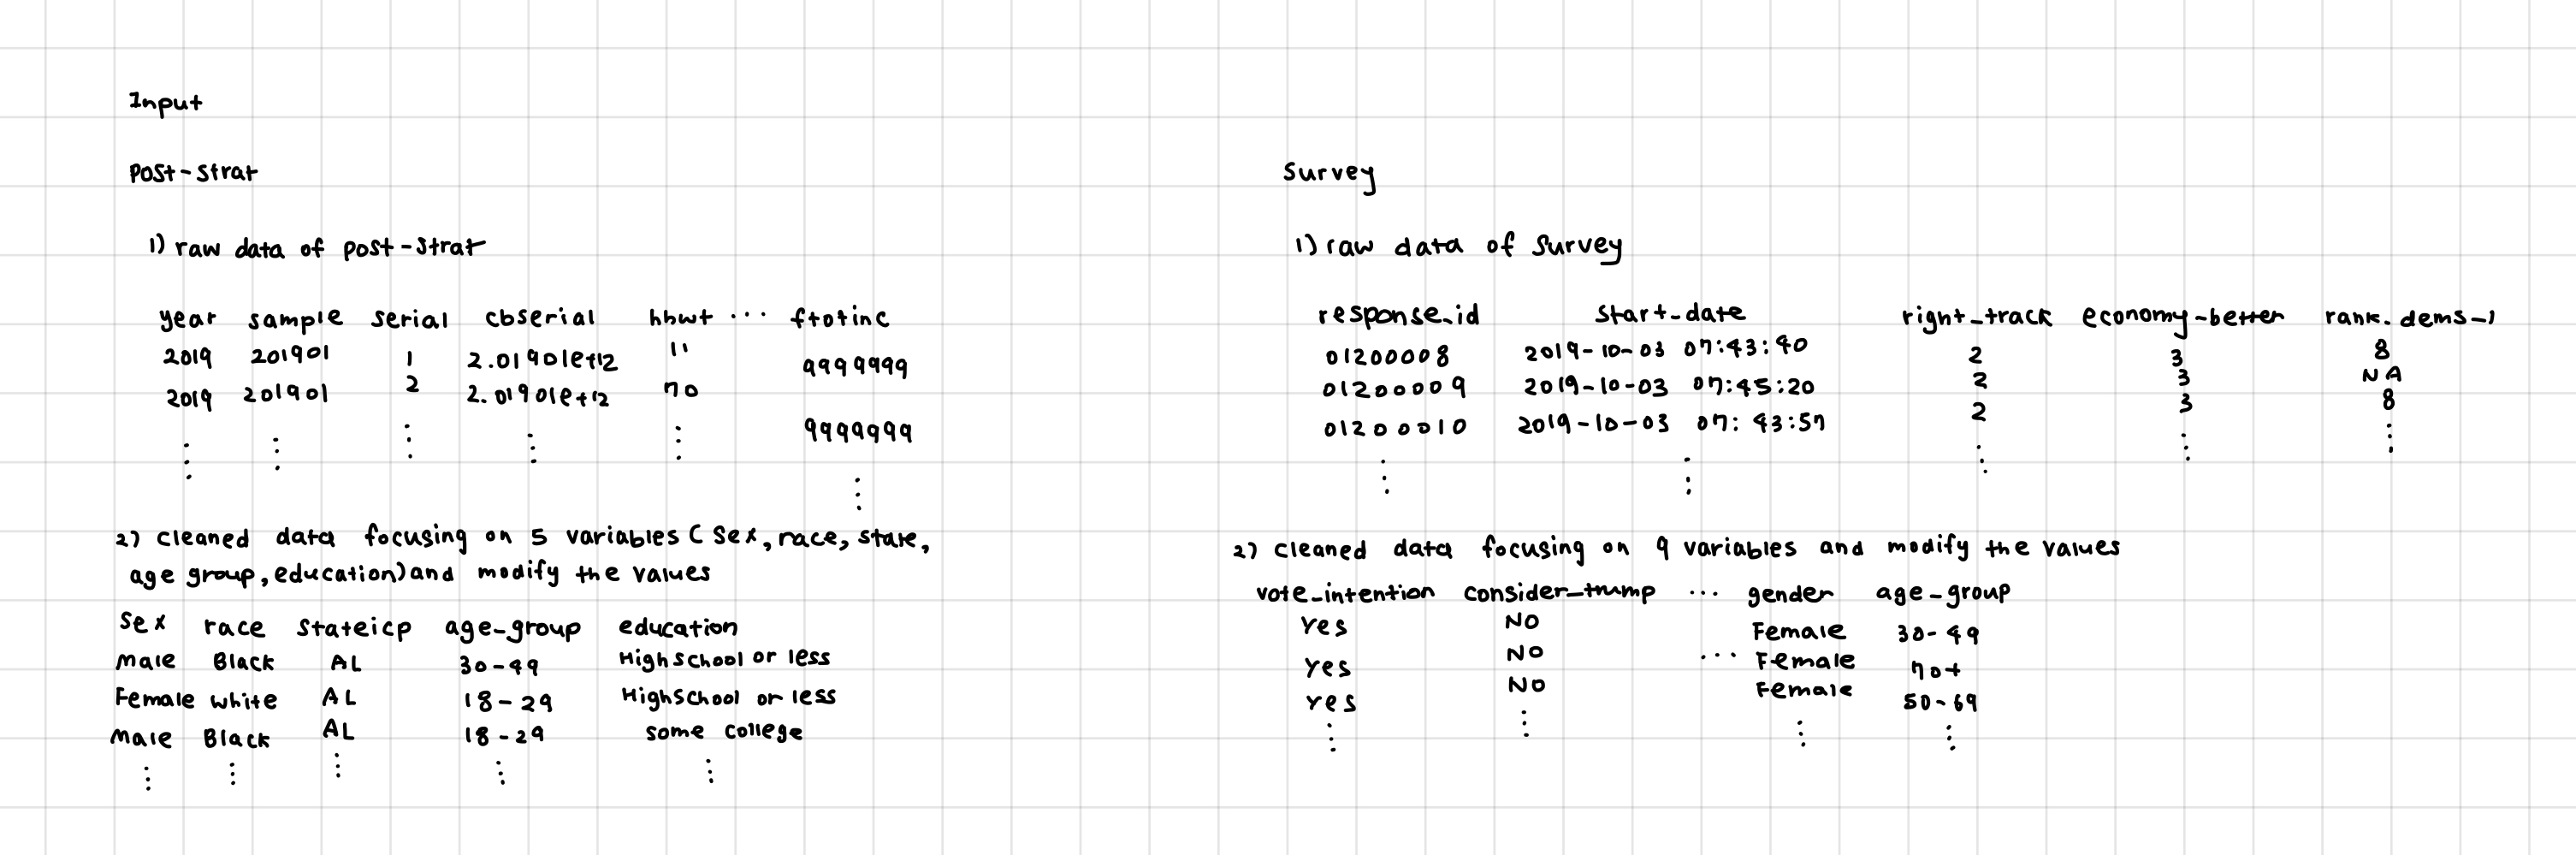 Input
Post-strat
1) raw data of post-strat
year sample serial cbserial hhwt ... ftotinc
2019 201901 1 2.01901e+12 11 9999999
2019 201901 2 2.01901e+12 70
9999999
2) cleaned data focusing on 5 variables ( sex, race, state,
age group, education) and modify the values
Sex race stateicp age_group education
Male Black AL 30-49 High school or less
Female white AL 18-29 High school or less
Male Black AL 18-29 some college
Survey
1) raw data of survey
response_id start_date right_track economy_better rank_dems_1
01200008 2019-10-03 07:43:40 2 3 8
01200009 2019-10-03 07:45:20 2 3 NA
01200010 2019-10-03 07:43:57 2 3 8
2) cleaned data focusing on 9 variables and modify the values
vote_intention consider_trump ... gender age_group
Yes NO Female 30-49
Yes NO ... Female 70+
Yes NO Female 50-69